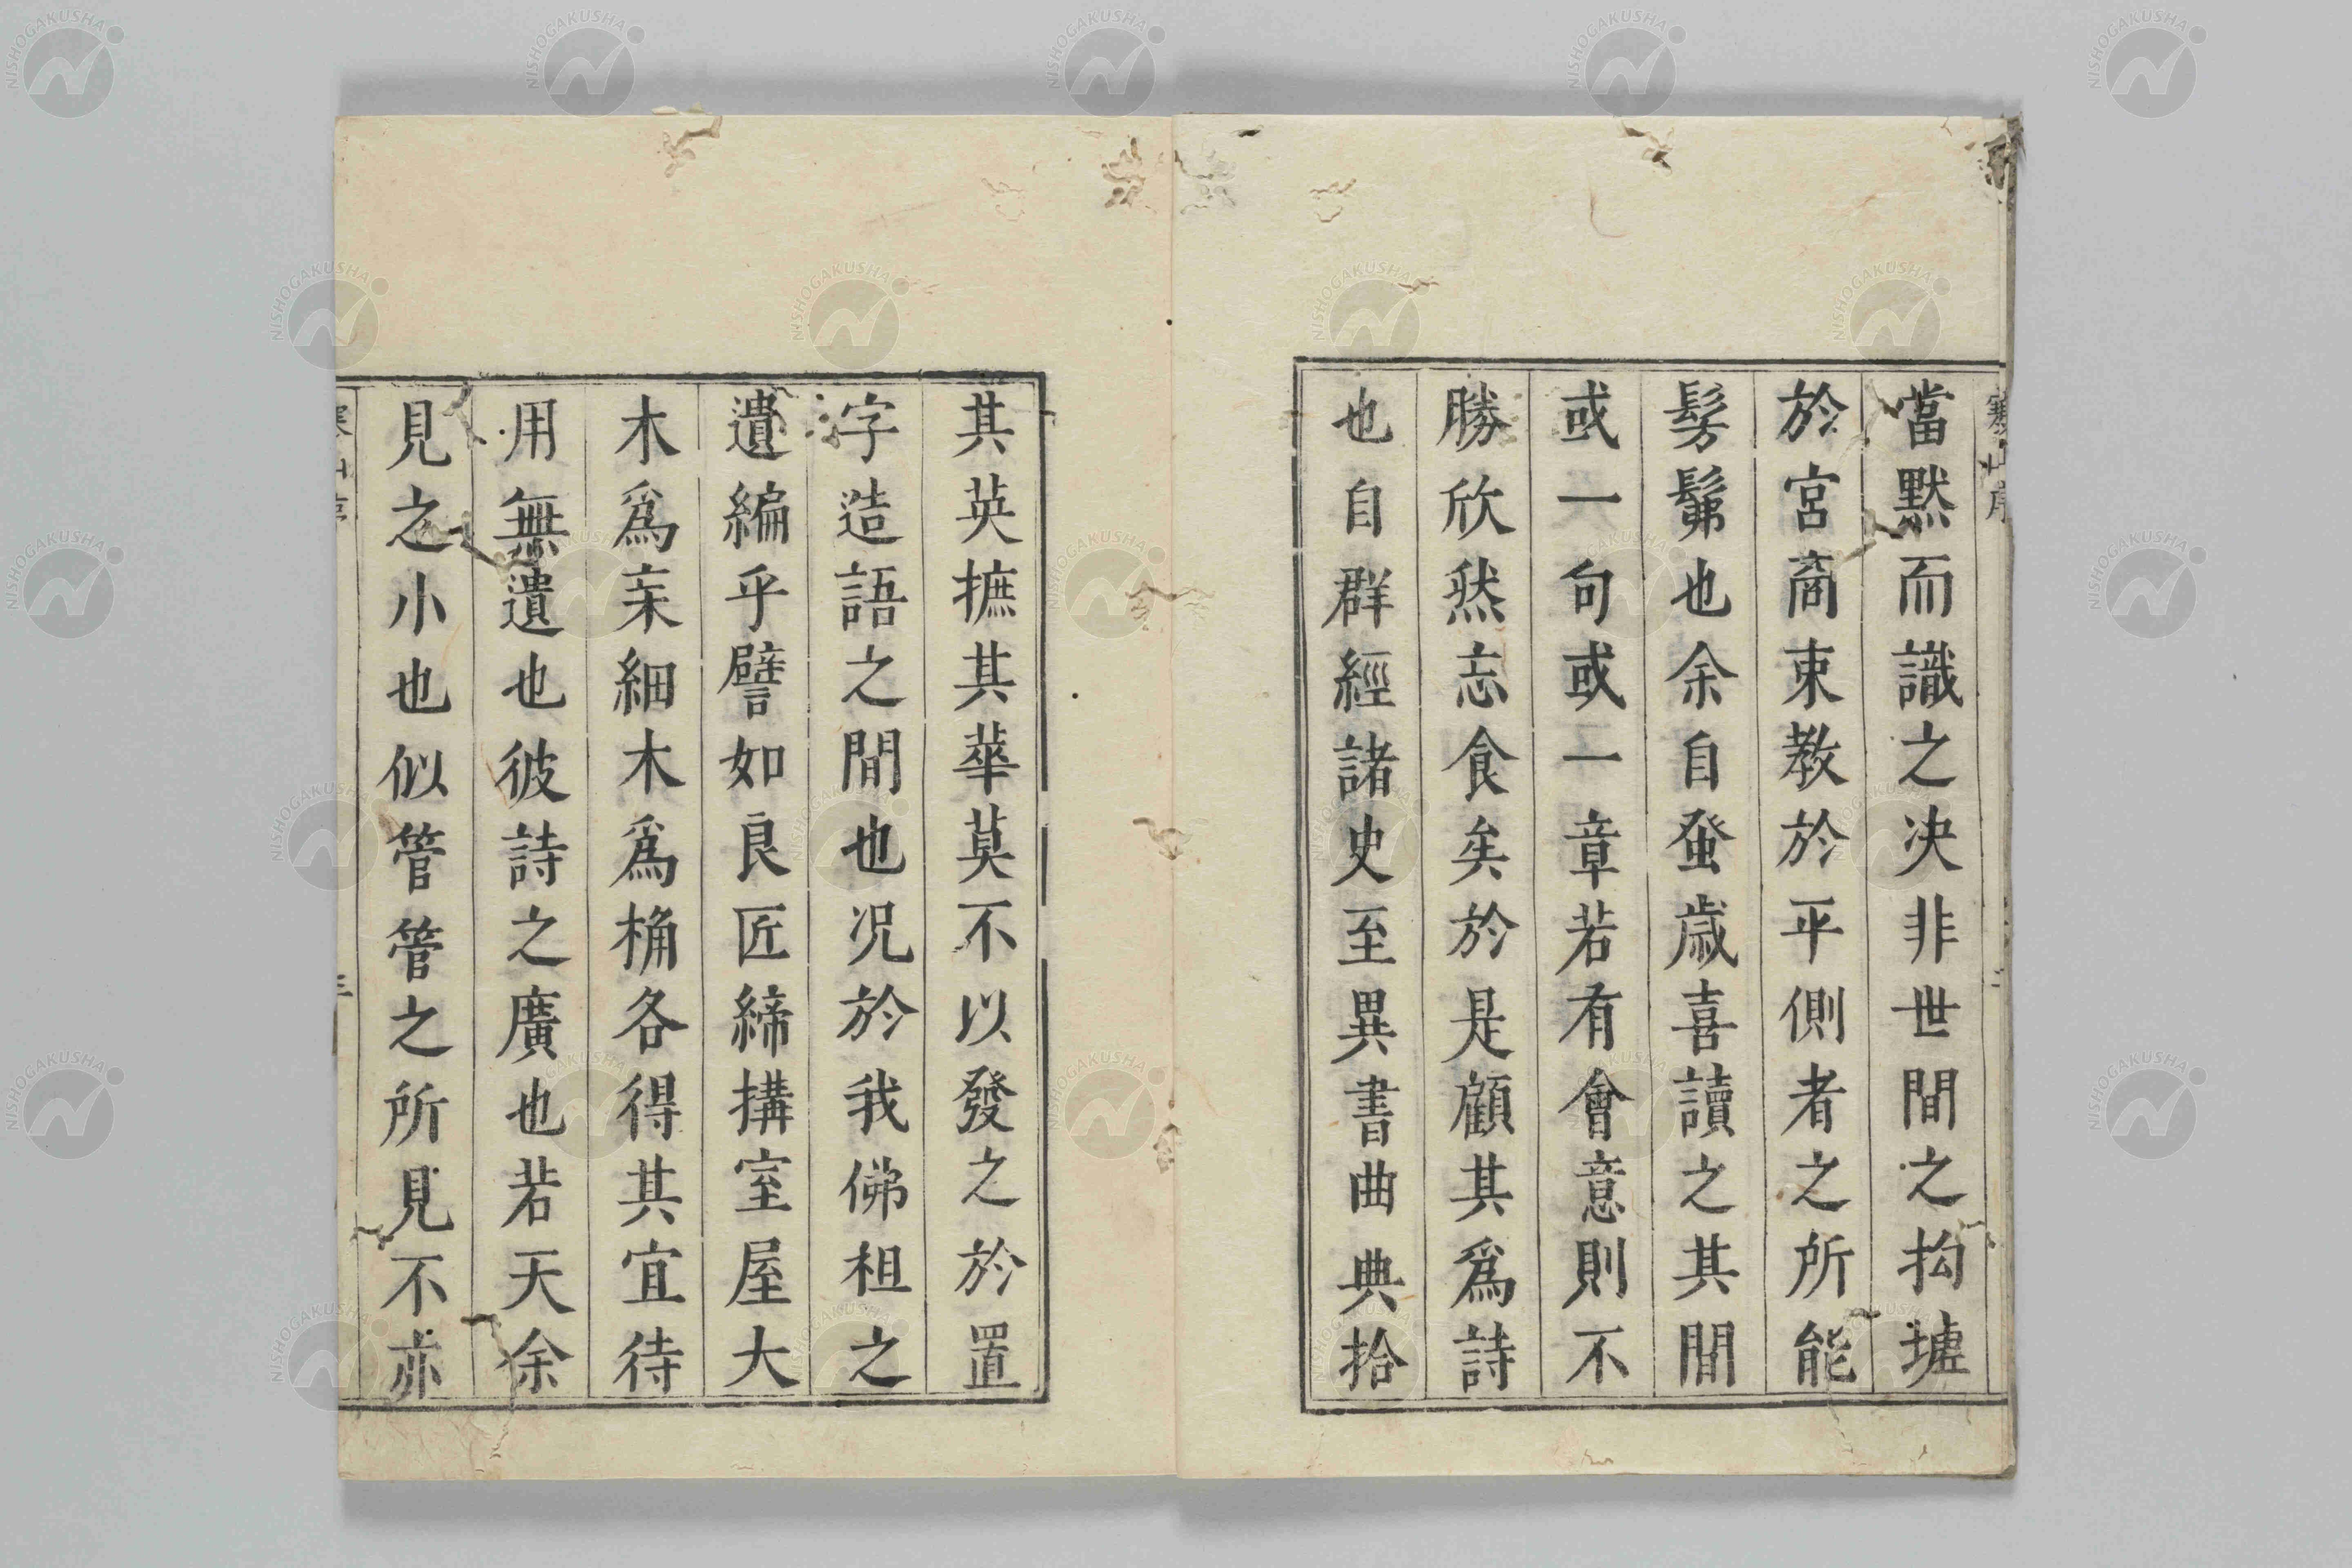 當默而識之决非世間之拘墟
於宮商束教於平側者之所能
髣髴也余自蚤歳喜讀之其間
或一句或一章若有會意則不
勝欣然忘食矣於是顧其爲詩
也自群經諸史至異書曲典拾
其英摭其華莫不以發之於置
字造語之間也况於我佛祖之
遺編乎譬如良匠締搆室屋大
木爲杗細木爲桷各得其宜待
用無遺也彼詩之廣也若天余
見之小也似管管之所見不亦
寒山序
三
NISHOGAKUSHA